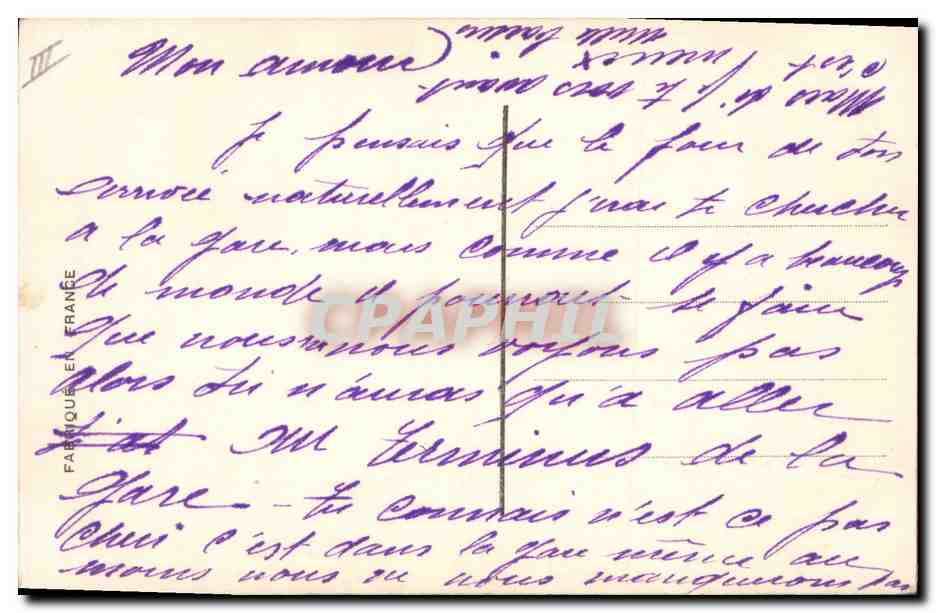 III
Mon amour
Je pensais que le jour de ton
arrivée naturellement j'irai te chercher
a la gare, mais comme il y a beaucoup
de monde il pourrait se faire
que nous nous voyons pas
alors tu n'auras qu'a aller
au Terminus de la
gare - tu connais n'est ce pas
cheri c'est dans la gare même au
moins nous ne nous manquerons pas
FABRIQUÉ EN FRANCE
CPAPHIL